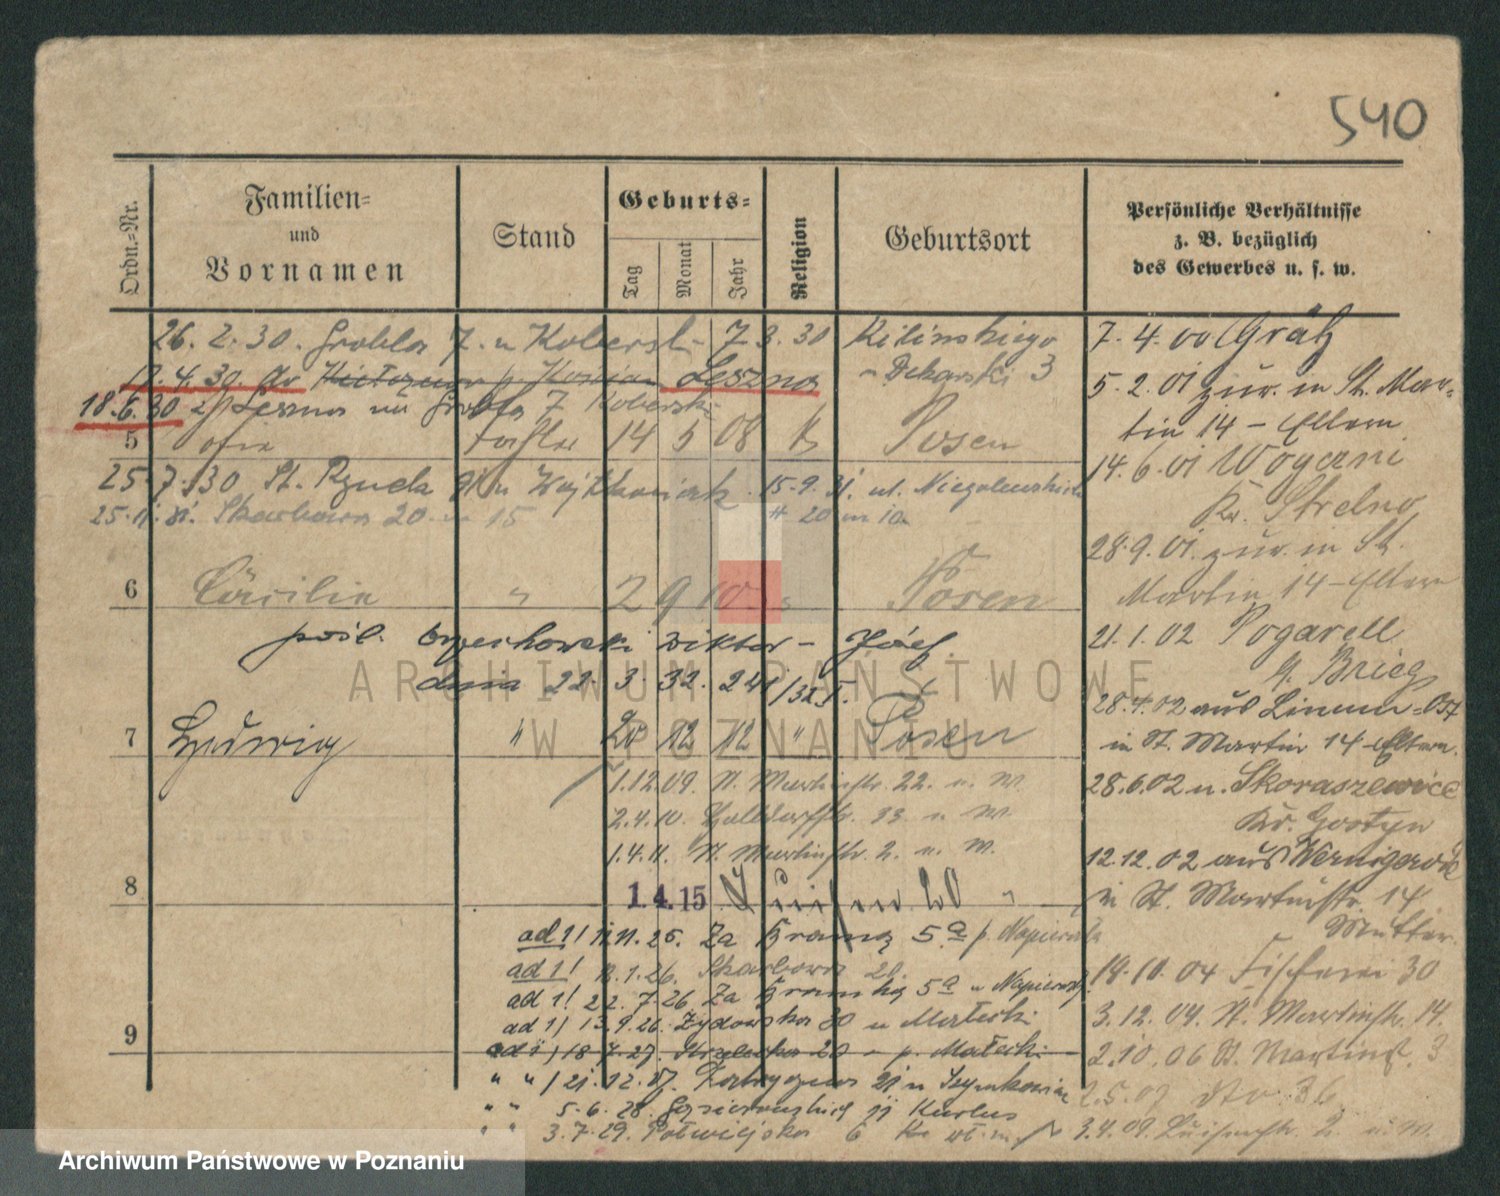 540
Ordn.-Nr.
Familien-
und
Vornamen
Stand
Geburts-
Tag
Monat
Jahr
Religion
Geburtsort
Persönliche Verhältnisse
z. B. bezüglich
des Gewerbes u. s. w.
26. 2. 30. Grobla 7. u Koberski 7 3. 30 Kilińskiego
4. 30. Leszno Dekarski 3
18. 6. 30 z Leszna na Grobla 7 Koberski
5 Tochter 14 5 08 k Posen
25. 7. 30 St. Rynek 15. 9. 31. ul. Niegolewskich
25. 11. 31. Skarbowa 20 15 20 m 10
6 Cäcilie " 2 9 10 " Posen
pośl. Orzechowski Wiktor - Józef
dnia 22. 3. 32. 241/32 I.
7 Hedwig " 20 12 12 " Posen
1.12.09. St. Martinstr. 22. u. W.
2.4.10. Halldorfstr. 33 u W.
1.4.11. St. Martinstr. 2. u. W.
8
1. 4. 15 Luisen 20 "
ad 1! 11. 25. Za Bramą 5a p. Napierała
ad 1! 1. 26. Skarbowa 20.
ad 1! 22. 7. 26 Za Bramką 5a u Napierał.
ad 1) 13. 9. 26. Żydowska 30 u Małecki
9
18 7. 27. Strzelecka 20 p. Małecki
" " / 21. 12. 27. 21 u Szymkowiak
" " 5. 6. 28. Gąsiorowskich u Karlus
" " 3. 7. 29. Półwiejska 6
7. 4. 00 Grätz
5. 2. 01 zur. in St. Mar-
tin 14 - Eltern
14. 6. 01 Wogani
Kr. Strelno
28. 9. 01. zur. in St.
Martin 14 - Eltern
21. 1. 02 Pogarell
Brieg
28. 4. 02 aus
in St. Martin 14 - Eltern.
28. 6. 02 n. Skoraszewice
Kr. Gostyn
12. 12. 02 aus Wernigerode
in St. Martinstr. 14
Mutter.
19. 10. 04 Fischerei 30
3. 12. 04. St. Martinstr. 14.
2. 10. 06 St. Martinst. 3
2. 5. 07 dto 36
3. 4. 09. Luisenstr. 2. u. W.
ARCHIWUM PAŃSTWOWE
W POZNANIU
Archiwum Państwowe w Poznaniu